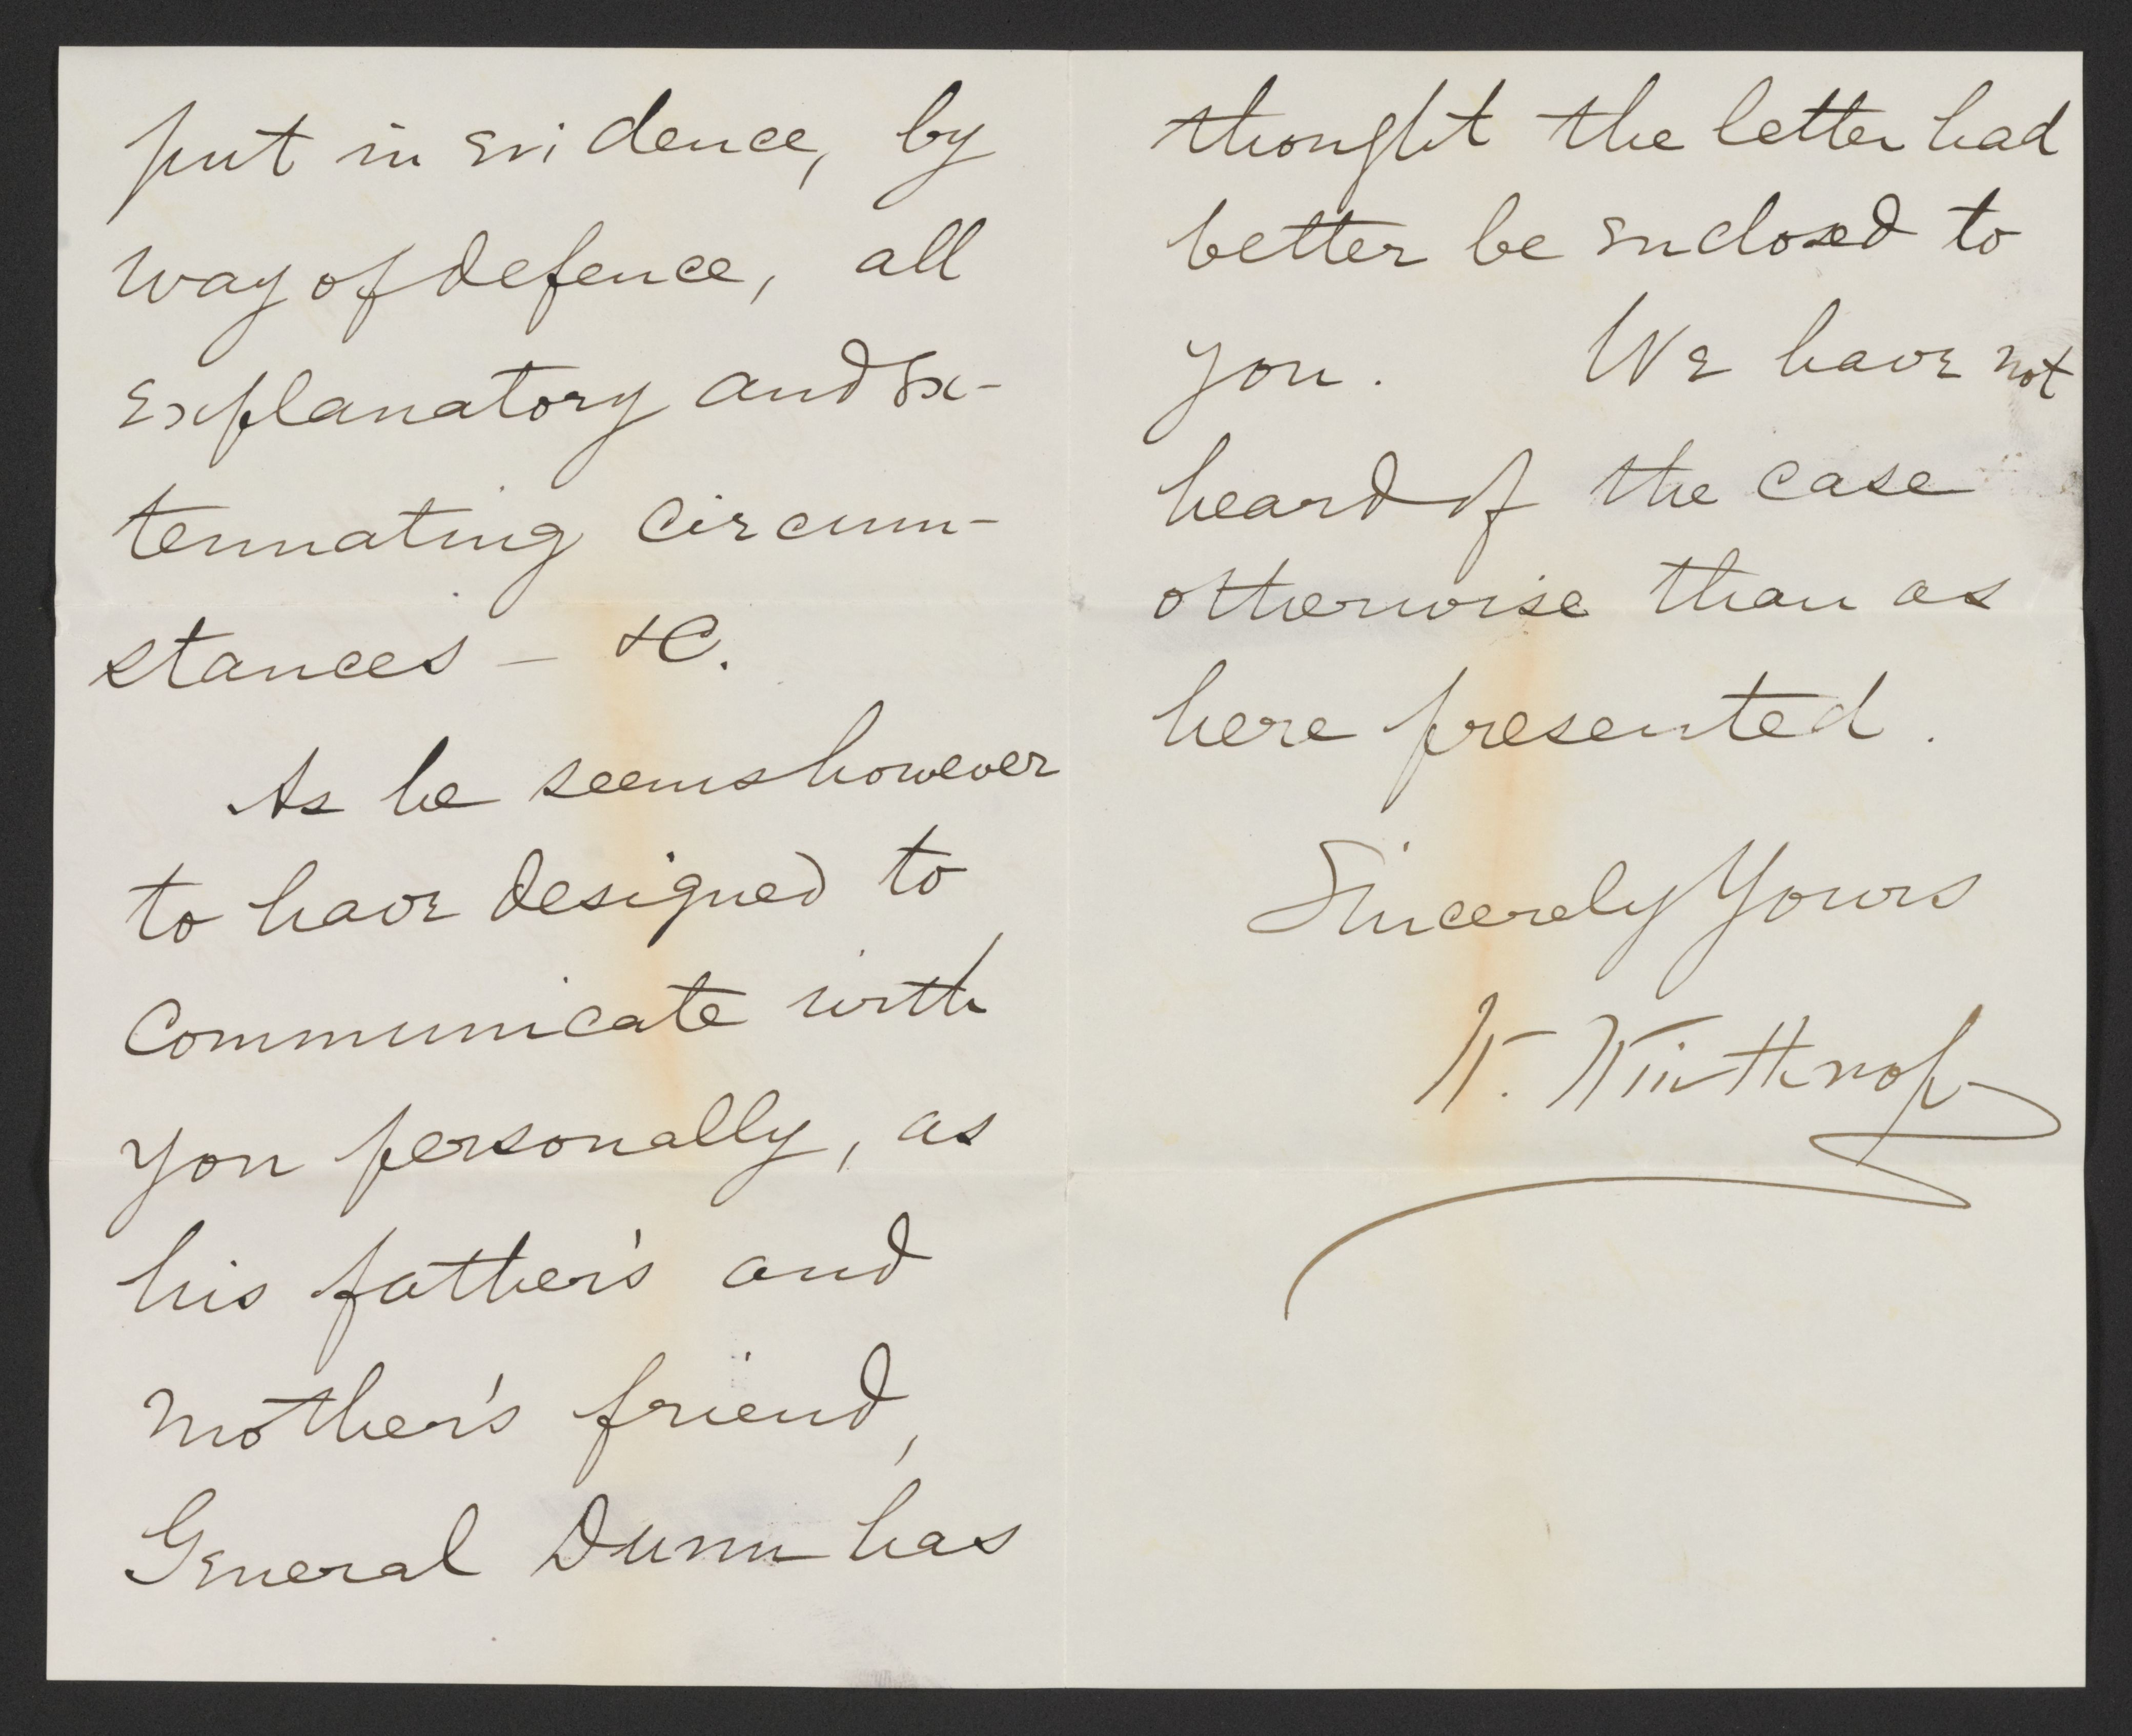 put in evidence, by
way of defence, all
explanatory and ex-
tenuating circum-
stances — &C.
As he seems however
to have designed to
Communicate with
you personally, as
his father's and
mother's friend,
General Dunn has
thought the letter had
better be enclosed to
you. We have not
heard of the case
otherwise than as
here presented.
Sincerely Yours
W. Winthrop